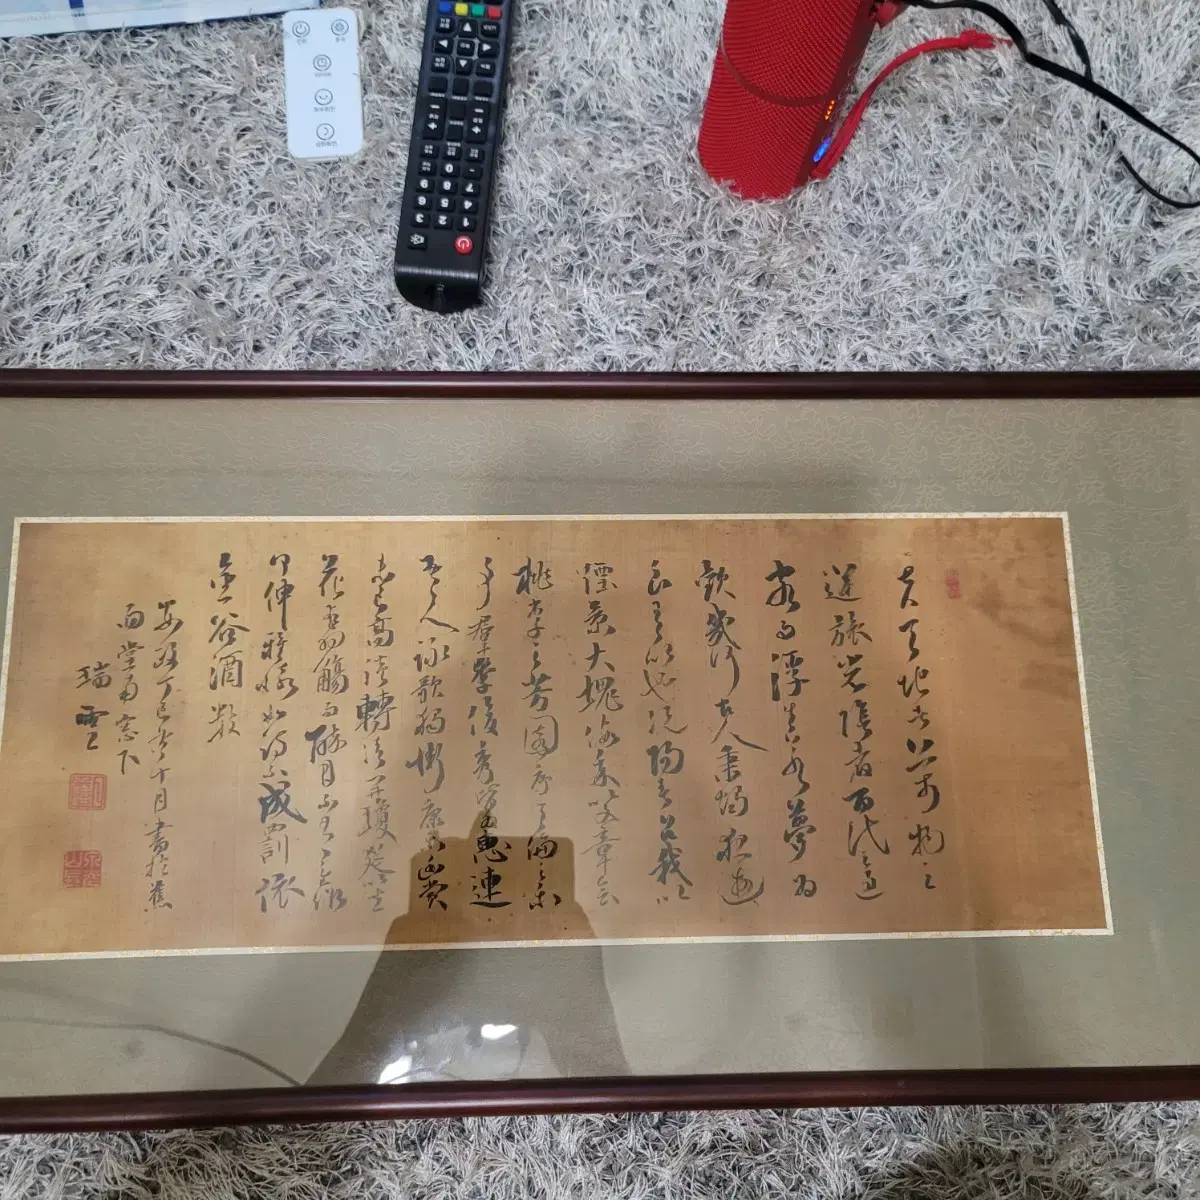 夫天地者萬物之
逆旅光陰者百代之過
客而浮生若夢為
歡幾何古人秉燭夜遊
良有以也況陽春召我以
煙景大塊假我以文章會
桃李之芳園序天倫之樂
事群季俊秀皆為惠連
吾人詠歌獨慚康樂幽賞
未已高談轉清開瓊筵以坐
花飛羽觴而醉月不有佳作
何伸雅懷如詩不成罰依
金谷酒數
丁巳 十月書於蕉
雨堂南窓下
瑞雪
1 2 3
4 5 6
7 8 9
0